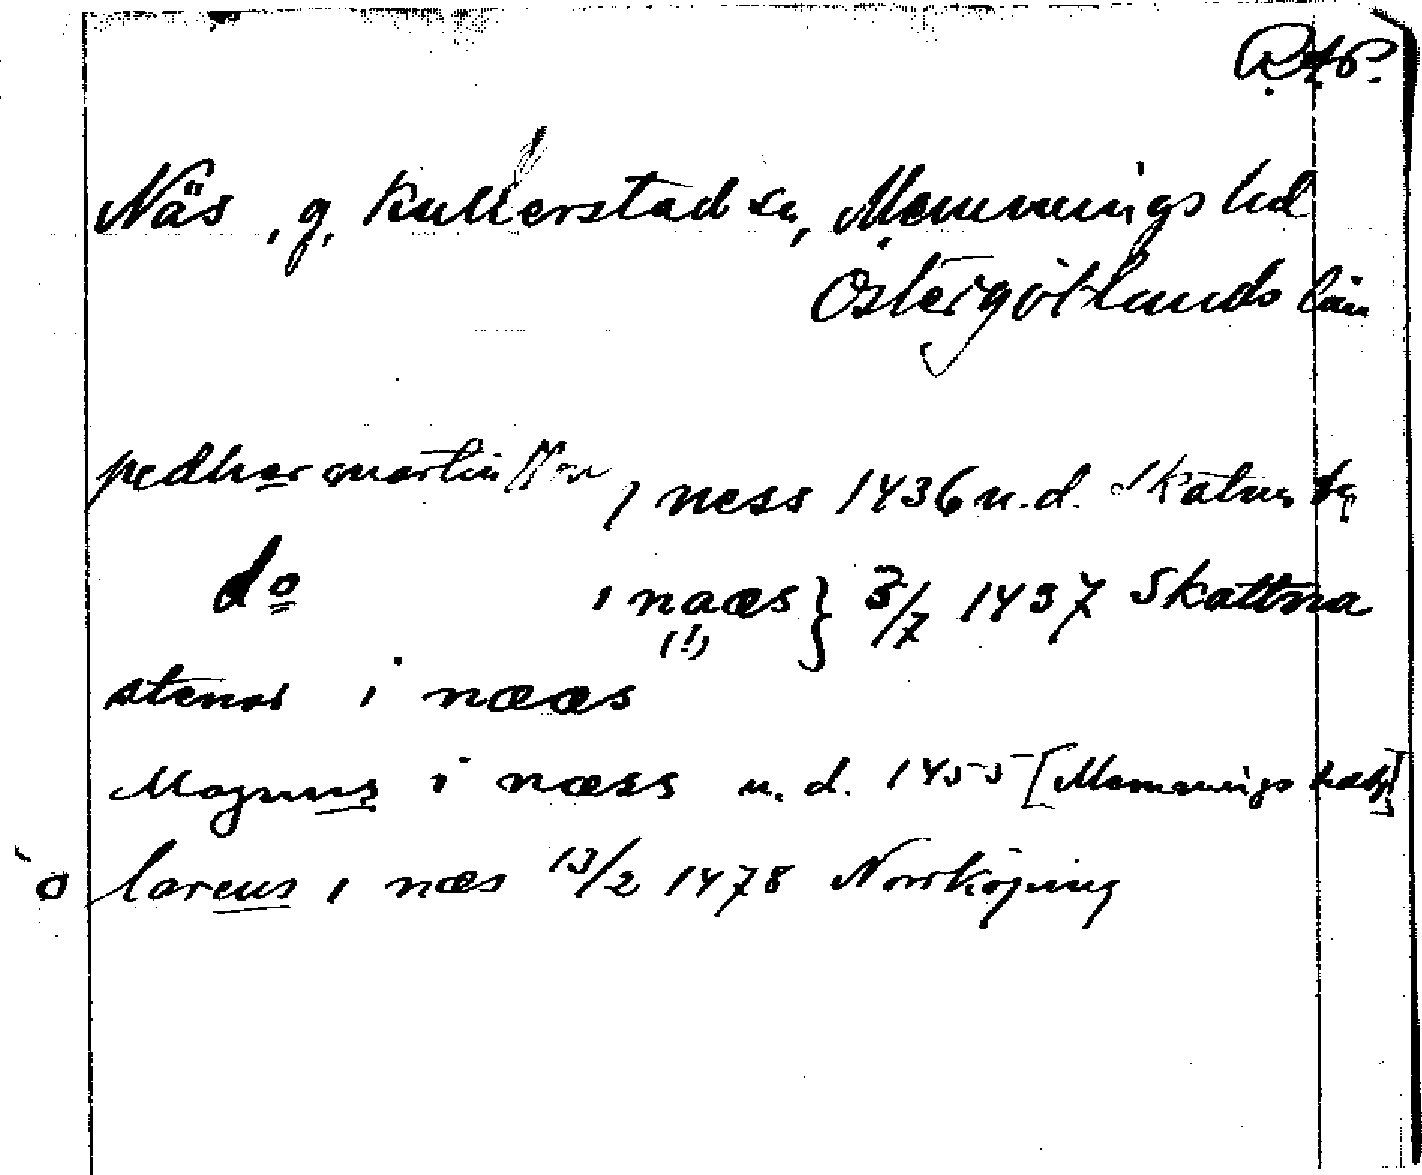 RAP.
Näs, g, Kullerstad sn, Memmings hd
Östergötlands län
pedhar martinsson, ness 1436 u.d. Skatna
do i naæs } 3/7 1437 Skattna
(!)
stenar i nææs
Magnus i næss u.d. 1455 [Memmings
o larens i næs 13/2 1478 Norrköping